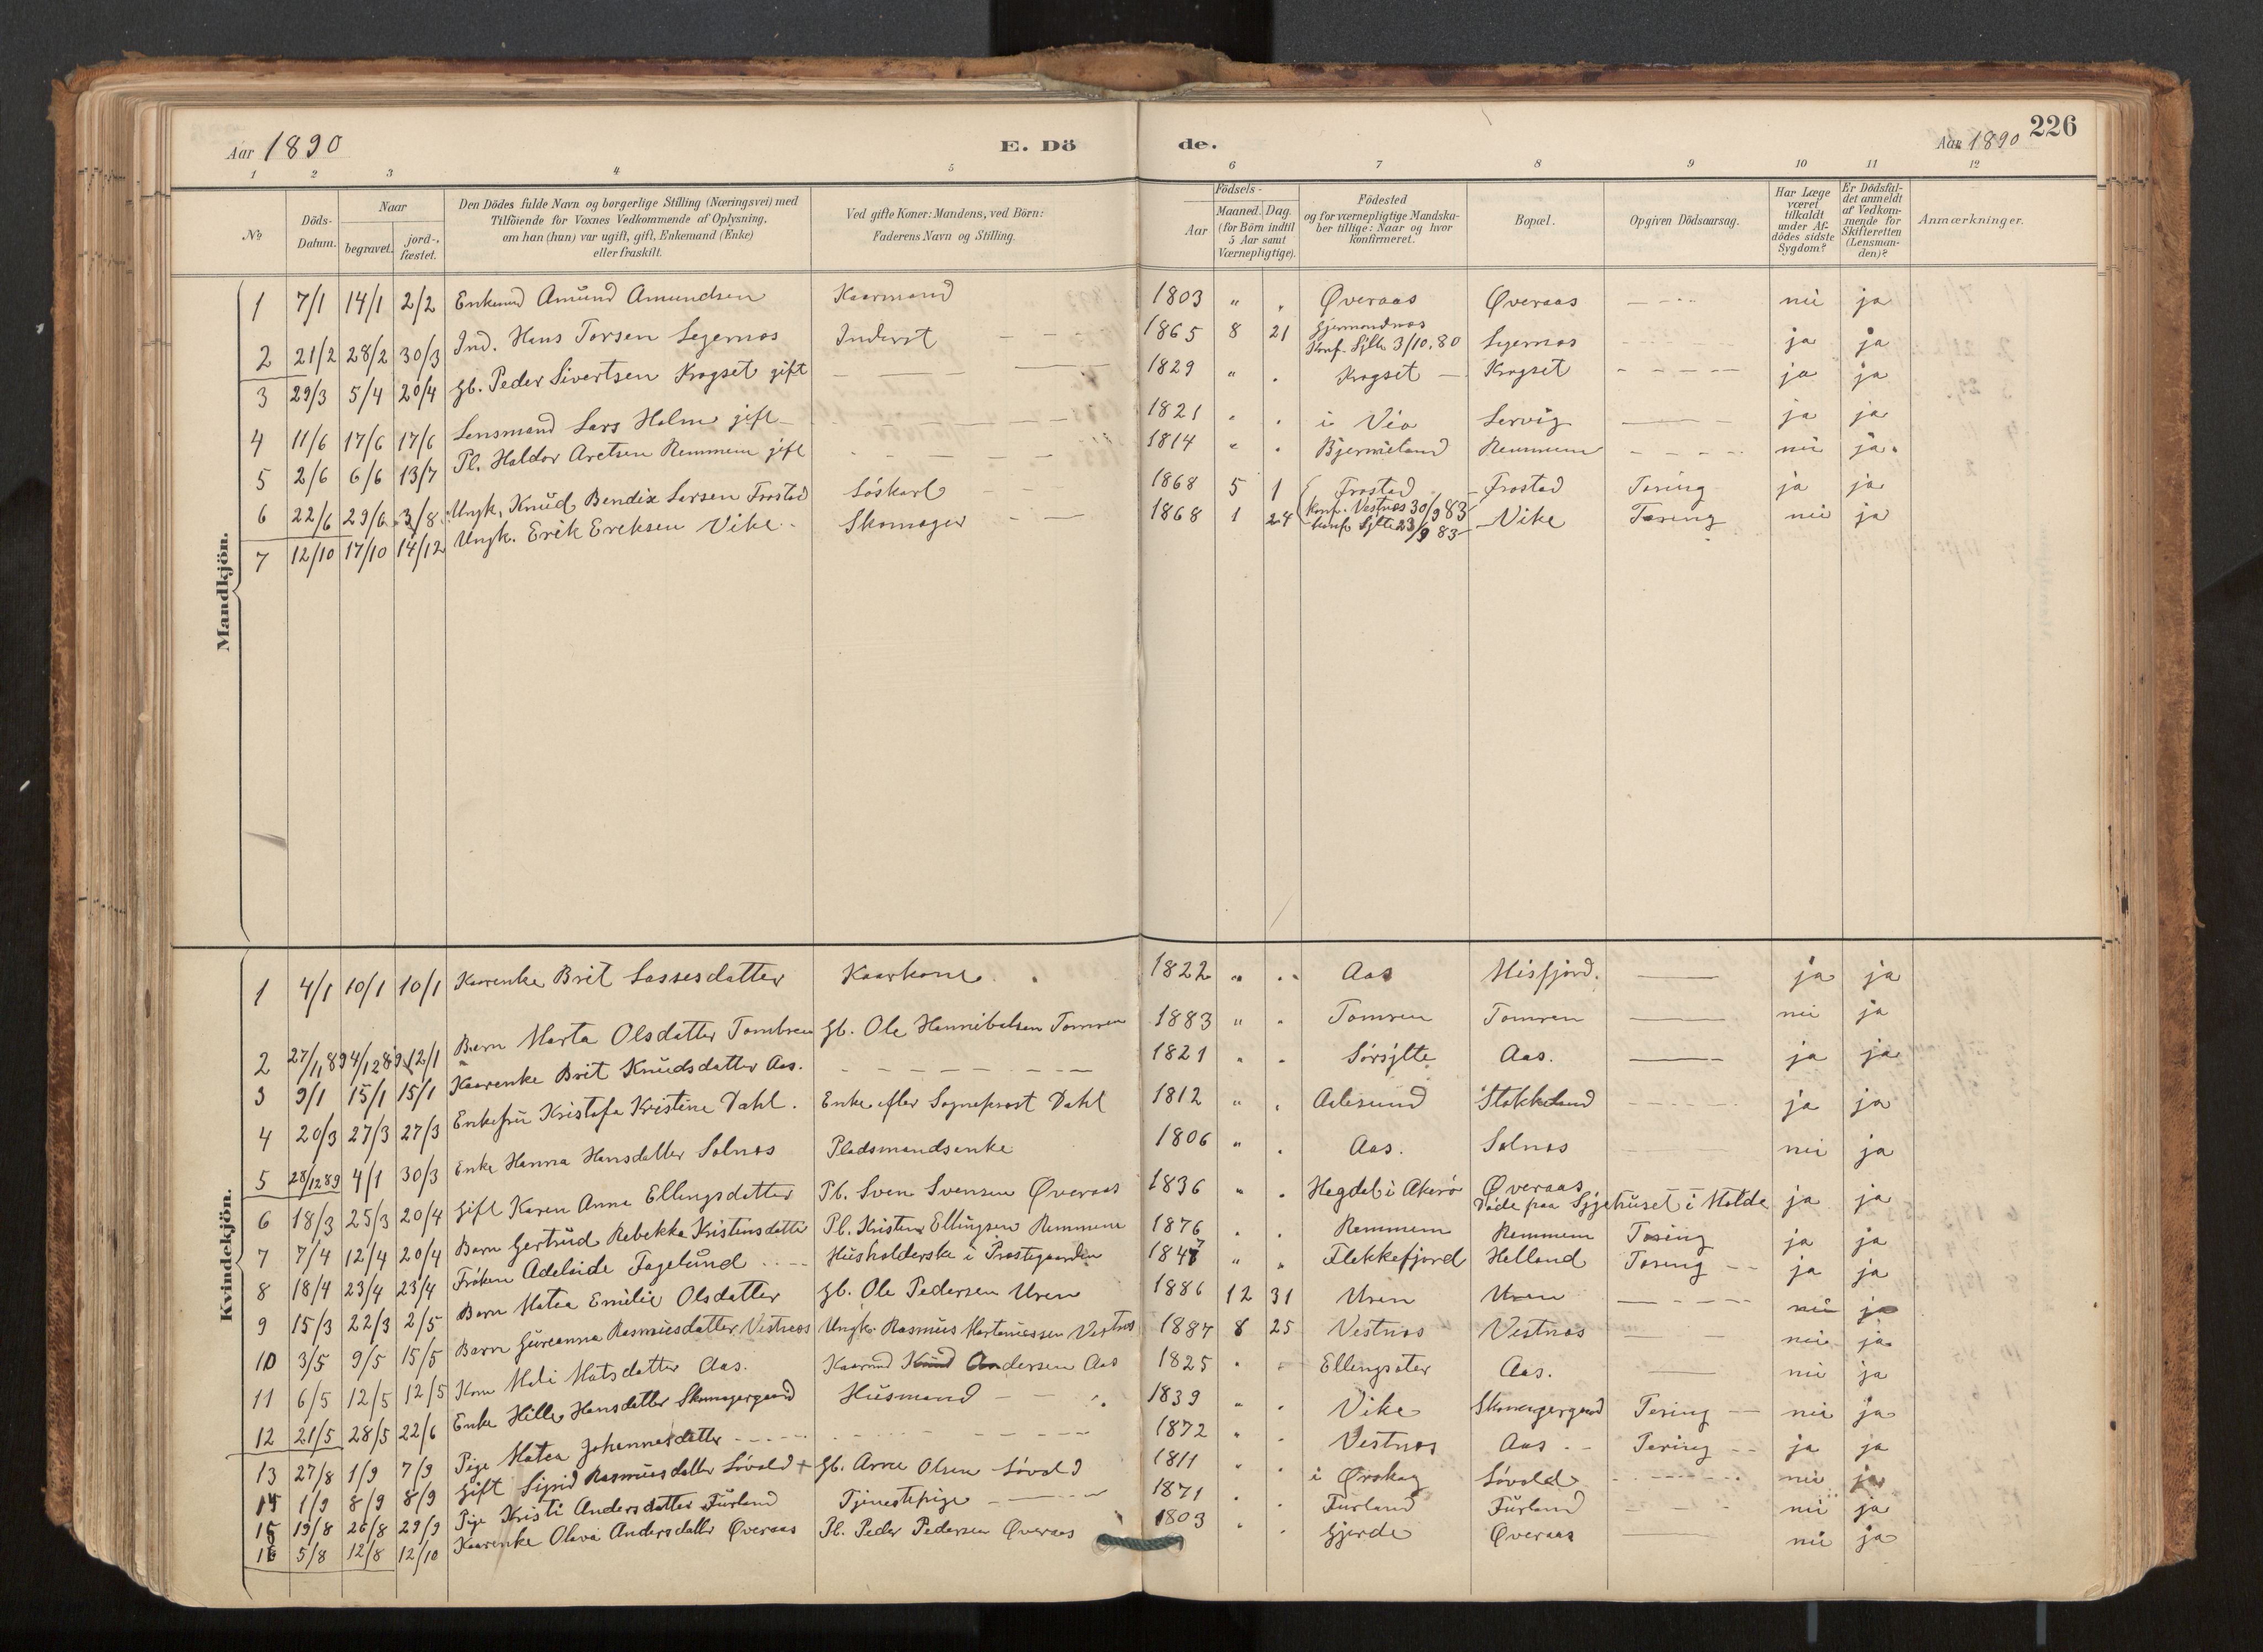 Aar 1890
E. Dö
de.
Aar 1890
226
1 2 3 4 5 6 7 8 9 10 11 12
No
Döds-Datum.
Naar
begravet.
jord-fæstet.
Den Dödes fulde Navn og borgerlige Stilling (Næringsvei) med
Tilföiende for Voxnes Vedkommende af Oplysning,
om han (hun) var ugift, gift, Enkemand (Enke)
eller fraskilt.
Ved gifte Koner: Mandens, ved Börn:
Faderens Navn og Stilling.
Födsels-
Aar
Maaned. Dag.
(for Börn indtil
5 Aar samt
Værnepligtige).
Födested
og for værnepligtige Mandska-
ber tillige: Naar og hvor
konfirmeret.
Bopæl.
Opgiven Dödsaarsag.
Har Læge
været
tilkaldt
under Af-
dödes sidste
Sygdom?
Er Dödsfal-
det anmeldt
af Vedkom-
mende for
Skifteretten
(Lensman-
den)?
Anmærkninger.
Mandkjön.
1 7/1 14/1 2/2 Enkemd Amund Amundsen Kaarmand 1803 " . Øveraas Øveraas — nei ja
2 21/2 28/2 30/3 Ind. Hans Torsen Inderst 1865 8 21 Gjermundnes Konf. Sylte 3/10.80 — ja ja
3 29/3 5/4 20/4 Gb. Peder Sivertsen Kragset gift — 1829 " . Kragset — Kragset — ja ja
4 11/6 17/6 17/6 Lensmand Lars Holm gift — 1821 " . i Vio Lervig — ja ja
5 2/6 6/6 13/7 Pl. Haldor Aretsen Remmem gift — 1814 " . Bjermeland Remmem — nei ja.
6 22/6 29/6 3/8 Ungk. Knud Bendix Larsen Frostad Löskarl — 1868 5 1 Frostad Konf. Vestnes 30/9 83 Frostad Tæring ja ja
7 12/10 17/10 14/12 Ungk. Erik Ereksen Vike Skomager — 1868 1 24 konf Sylte 23/9 83 — Vike Tæring nei ja
Kvindekjön.
1 4/1 10/1 10/1 Kaarenke Brit Lassesdatter Kaarkone 1822 " " Aas Misfjord. — ja ja
2 27/11 89 4/12 89 12/1 Barn Marta Olsdatter Tombren Gb. Ole Hannibalsen Tomren 1883 " . Tomren Tomren — nei ja
3 9/1 15/1 15/1 Kaarenke Brit Knudsdatter Aas. — 1821 " . Sörsylte Aas. — ja ja
4 20/3 27/3 27/3 Enkefru Kristofa Kristine Dahl. Enke efter Sogneprest Dahl 1812 " . Aalesund Stokkeland — ja ja
5 28/12 89 4/1 30/3 Enke Hanna Hansdatter Solnes Pladsmandsenke 1806 " . Aas. Solnes — nei ja
6 18/3 25/3 20/4 Gift Karen Anna Ellingsdatter Pl. Sven Svensen Øveraas 1836 " . Hegdal i Akerö Øveraas Döde paa Sygehuset i Molde ja ja
7 7/4 12/4 20/4 Barn Gertrud Rebekka Kristensdatter Pl. Kristen Ellingsen Remmem 1876 . . Remmem Remmem Tæring ja ja
8 18/4 23/4 23/4 Fröken Adelaide Fagelund — Husholderske i Prestegaarden 1847 " " Flekkefjord Helland Tæring — ja ja
9 15/3 22/3 2/5 Barn Matea Emilie Olsdatter Gb. Ole Pedersen Uren 1886 12 31 Uren Uren — nei ja
10 3/5 9/5 15/5 Barn Gureanna Rasmusdatter Vestnes Ungk. Rasmus Martiniussen Vestnes 1887 8 25 Vestnes Vestnes — nei ja
11 6/5 12/5 12/5 Kone Mali Matsdatter Aas. Kaarmd Knud Andersen Aas 1825 " " Ellingsæter Aas. — nei ja
12 21/5 28/5 22/6 Enke Hille Hansdatter Skomagergaard Husmand — 1839 " . Vike Skomagergaard Tæring — nei ja
13 27/8 1/9 7/9 Pige Matea Johannesdatter — 1872 " . Vestnes Aas — Tæring — ja ja
14 1/9 8/9 8/9 Gift Sigrid Rasmusdatter Lövold + Gb. Arne Olsen Lövold 1811 . . i Ørskog Lövold — nei ja
15 19/8 26/8 29/9 Pige Kristi Andersdatter Furland Tjenestepige — 1871 . . Furland Furland — nei ja
16 5/8 12/8 12/10 Kaarenke Olava Andersdatter Øveraas Pl. Peder Pedersen Øveraas 1803 . . Gjerde Øveraas — nei ja